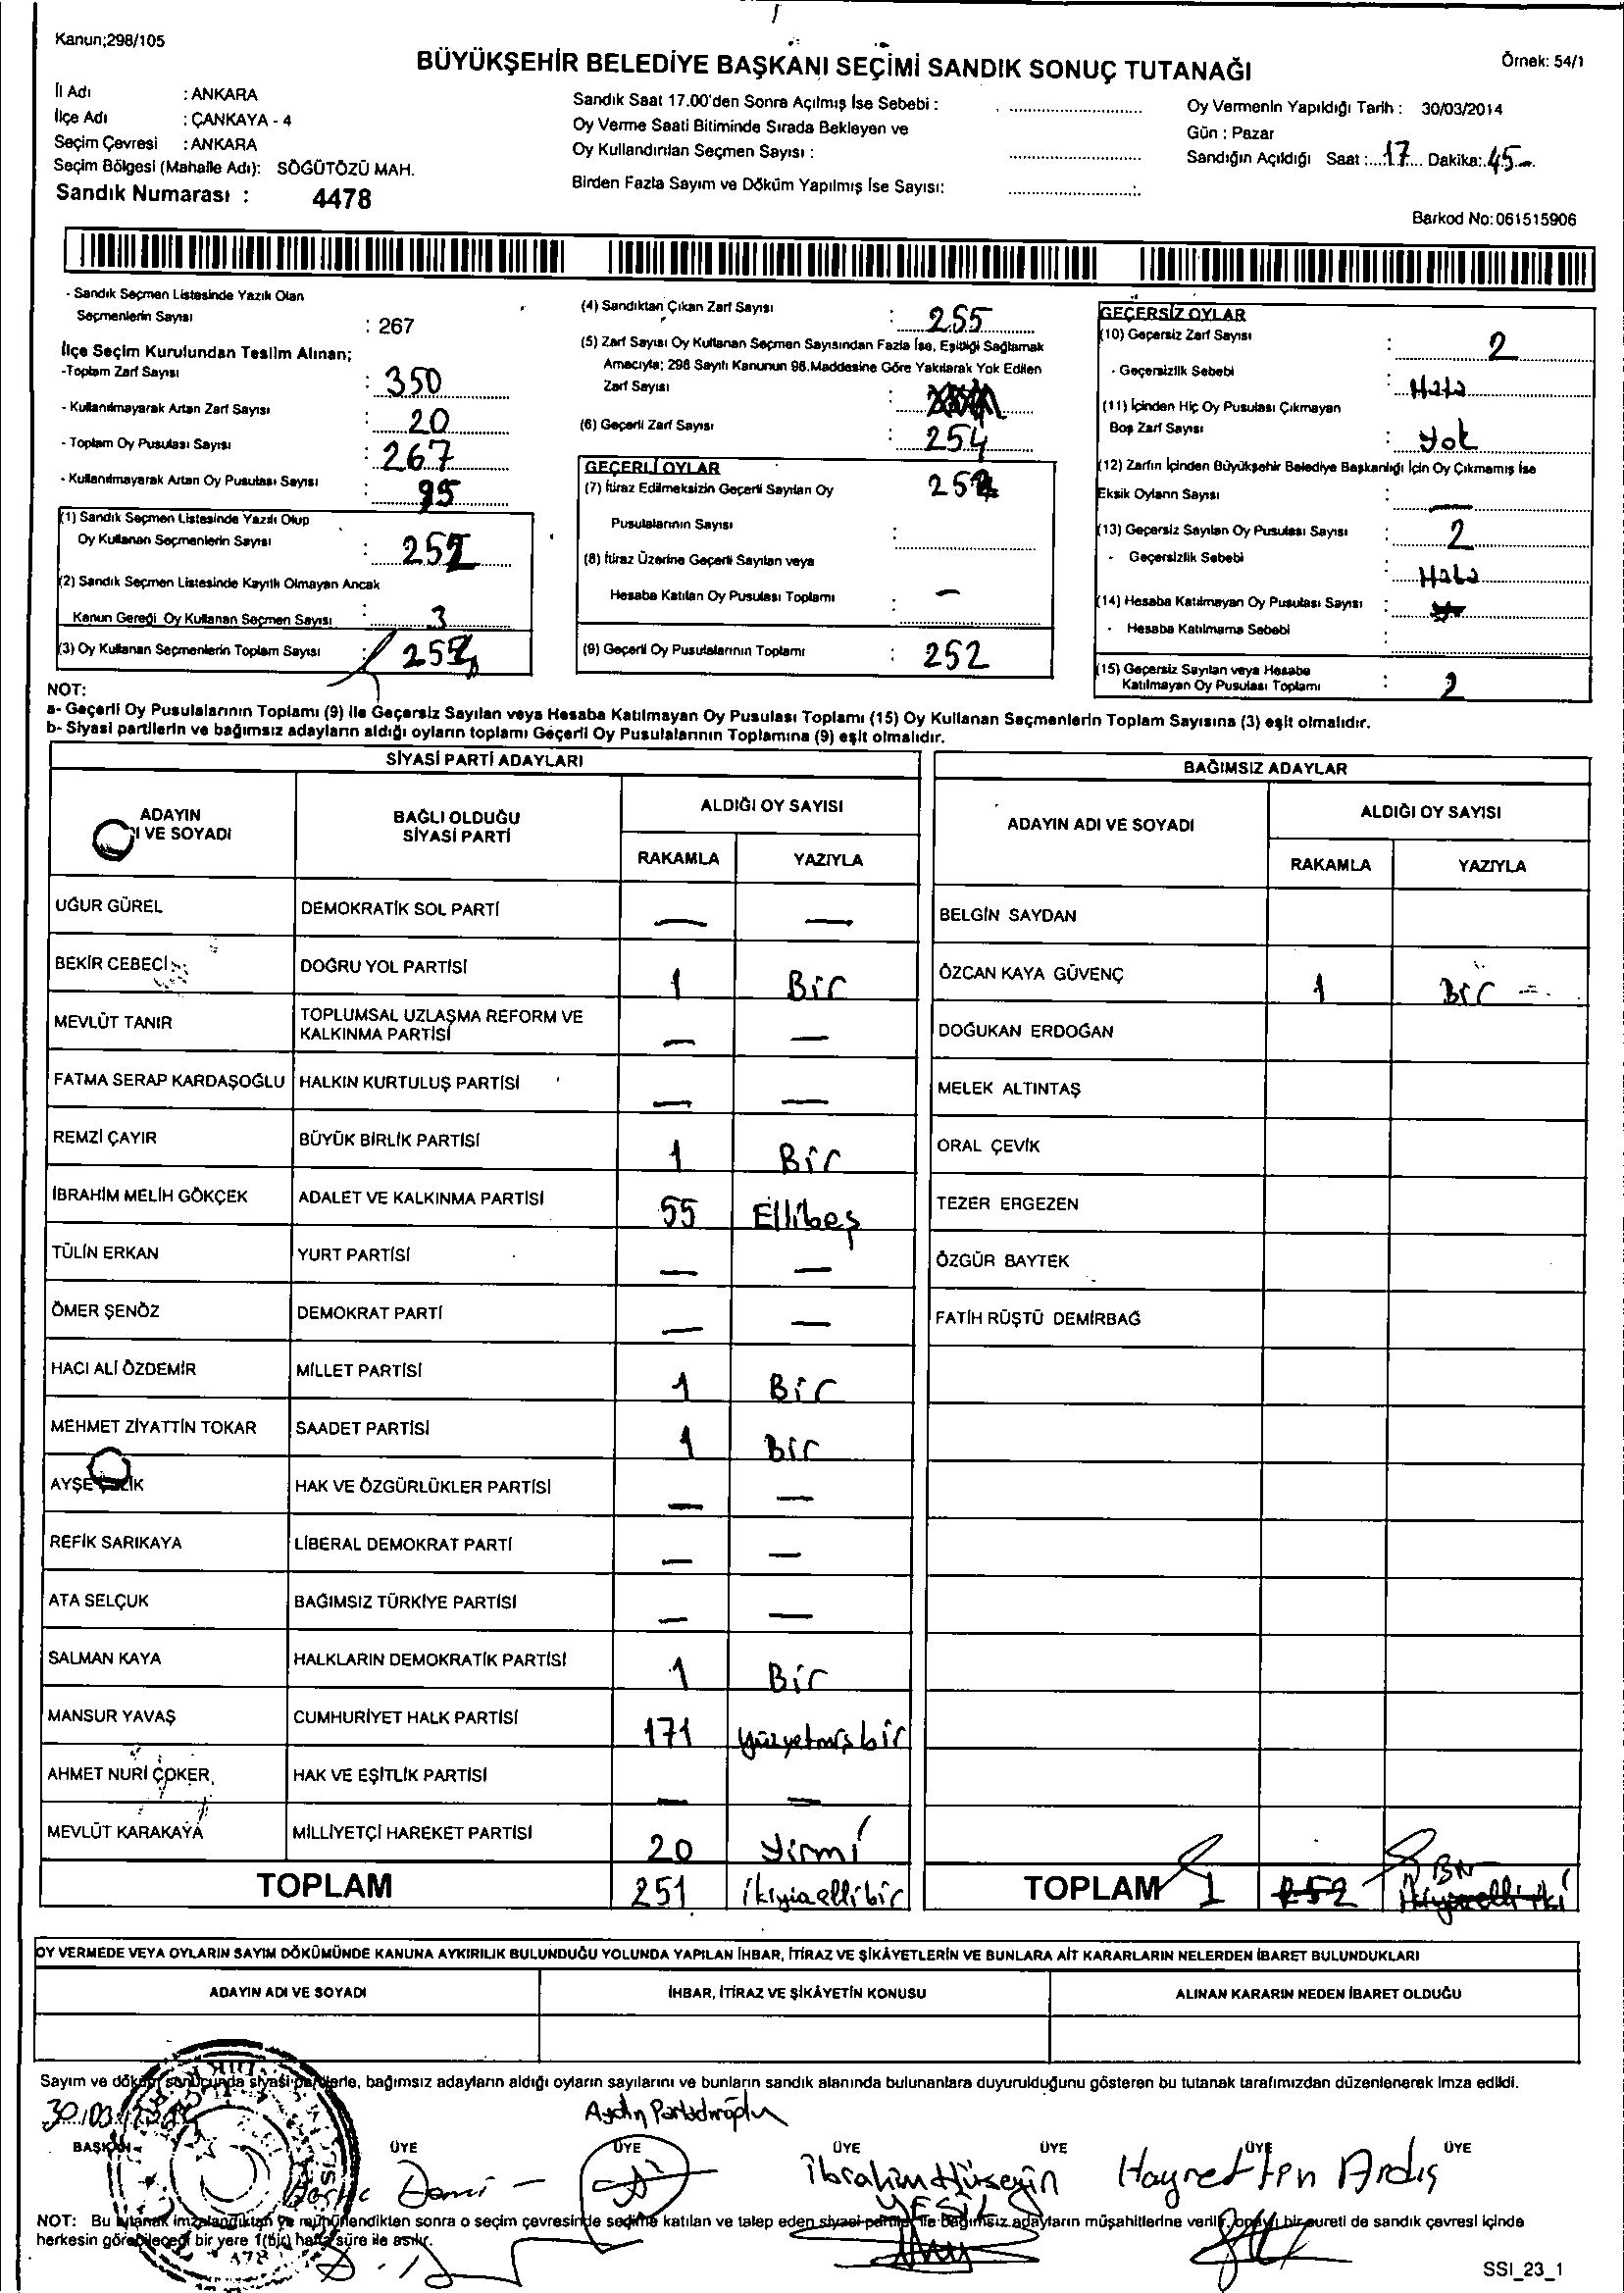 Kanun;298/105
BÜYÜKŞEHİR BELEDİYE BAŞKANI SEÇİMİ SANDIK SONUÇ TUTANAĞI
Örnek: 54/1
İl Adı : ANKARA
İlçe Adı : ÇANKAYA - 4
Seçim Çevresi : ANKARA
Seçim Bölgesi (Mahalle Adı): SÖĞÜTÖZÜ MAH.
Sandık Numarası : 4478
Sandık Saat 17.00'den Sonra Açılmış İse Sebebi :
Oy Verme Saati Bitiminde Sırada Bekleyen ve
Oy Kullandırılan Seçmen Sayısı :
Birden Fazla Sayım ve Döküm Yapılmış İse Sayısı:
Oy Vermenin Yapıldığı Tarih : 30/03/2014
Gün : Pazar
Sandığın Açıldığı Saat : 17 Dakika: 45
Barkod No: 061515906
- Sandık Seçmen Listesinde Yazılı Olan
Seçmenlerin Sayısı : 267
İlçe Seçim Kurulundan Teslim Alınan;
-Toplam Zarf Sayısı : 350
- Kullanılmayarak Artan Zarf Sayısı : 20
- Toplam Oy Pusulası Sayısı : 267
- Kullanılmayarak Artan Oy Pusulası Sayısı : 95
(1) Sandık Seçmen Listesinde Yazılı Olup
Oy Kullanan Seçmenlerin Sayısı :
(2) Sandık Seçmen Listesinde Kayıtlı Olmayan Ancak
Kanun Gereği Oy Kullanan Seçmen Sayısı : 3
(3) Oy Kullanan Seçmenlerin Toplam Sayısı :
(4) Sandıktan Çıkan Zarf Sayısı : 255
(5) Zarf Sayısı Oy Kullanan Seçmen Sayısından Fazla İse, Eşitliği Sağlamak
Amacıyla; 298 Sayılı Kanunun 98.Maddesine Göre Yakılarak Yok Edilen
Zarf Sayısı :
(6) Geçerli Zarf Sayısı : 254
GEÇERLİ OYLAR
(7) İtiraz Edilmeksizin Geçerli Sayılan Oy
Pusulalarının Sayısı :
(8) İtiraz Üzerine Geçerli Sayılan veya
Hesaba Katılan Oy Pusulası Toplamı : —
(9) Geçerli Oy Pusulalarının Toplamı : 252
GEÇERSİZ OYLAR
(10) Geçersiz Zarf Sayısı : 2
- Geçersizlik Sebebi : Hata
(11) İçinden Hiç Oy Pusulası Çıkmayan
Boş Zarf Sayısı : Yok
(12) Zarfın İçinden Büyükşehir Belediye Başkanlığı İçin Oy Çıkmamış İse
Eksik Oyların Sayısı : —
(13) Geçersiz Sayılan Oy Pusulası Sayısı : 2
- Geçersizlik Sebebi : Hata
(14) Hesaba Katılmayan Oy Pusulası Sayısı :
- Hesaba Katılmama Sebebi :
(15) Geçersiz Sayılan veya Hesaba
Katılmayan Oy Pusulası Toplamı : 2
NOT:
a- Geçerli Oy Pusulalarının Toplamı (9) ile Geçersiz Sayılan veya Hesaba Katılmayan Oy Pusulası Toplamı (15) Oy Kullanan Seçmenlerin Toplam Sayısına (3) eşit olmalıdır.
b- Siyasi partilerin ve bağımsız adayların aldığı oyların toplamı Geçerli Oy Pusulalarının Toplamına (9) eşit olmalıdır.
SİYASİ PARTİ ADAYLARI
ADAYIN I VE SOYADI
BAĞLI OLDUĞU SİYASİ PARTİ
ALDIĞI OY SAYISI
RAKAMLA YAZIYLA
UĞUR GÜREL DEMOKRATİK SOL PARTİ — —
BEKİR CEBECİ DOĞRU YOL PARTİSİ 1 Bir
MEVLÜT TANIR TOPLUMSAL UZLAŞMA REFORM VE KALKINMA PARTİSİ — —
FATMA SERAP KARDAŞOĞLU HALKIN KURTULUŞ PARTİSİ — —
REMZİ ÇAYIR BÜYÜK BİRLİK PARTİSİ 1 Bir
İBRAHİM MELİH GÖKÇEK ADALET VE KALKINMA PARTİSİ 55 Ellibeş
TÜLİN ERKAN YURT PARTİSİ — —
ÖMER ŞENÖZ DEMOKRAT PARTİ — —
HACI ALİ ÖZDEMİR MİLLET PARTİSİ 1 Bir
MEHMET ZİYATTİN TOKAR SAADET PARTİSİ 1 Bir
AYŞE HAK VE ÖZGÜRLÜKLER PARTİSİ — —
REFİK SARIKAYA LİBERAL DEMOKRAT PARTİ — —
ATA SELÇUK BAĞIMSIZ TÜRKİYE PARTİSİ — —
SALMAN KAYA HALKLARIN DEMOKRATİK PARTİSİ 1 Bir
MANSUR YAVAŞ CUMHURİYET HALK PARTİSİ 171 yüzyetmişbir
AHMET NURİ ÇOKER HAK VE EŞİTLİK PARTİSİ — —
MEVLÜT KARAKAYA MİLLİYETÇİ HAREKET PARTİSİ 20 Yirmi
TOPLAM 251 ikiyüzellibir
BAĞIMSIZ ADAYLAR
ADAYIN ADI VE SOYADI
ALDIĞI OY SAYISI
RAKAMLA YAZIYLA
BELGİN SAYDAN
ÖZCAN KAYA GÜVENÇ 1 Bir
DOĞUKAN ERDOĞAN
MELEK ALTINTAŞ
ORAL ÇEVİK
TEZER ERGEZEN
ÖZGÜR BAYTEK
FATİH RÜŞTÜ DEMİRBAĞ
TOPLAM 1 252 ikiyüzelliiki
OY VERMEDE VEYA OYLARIN SAYIM DÖKÜMÜNDE KANUNA AYKIRILIK BULUNDUĞU YOLUNDA YAPILAN İHBAR, İTİRAZ VE ŞİKÂYETLERİN VE BUNLARA AİT KARARLARIN NELERDEN İBARET BULUNDUKLARI
ADAYIN ADI VE SOYADI İHBAR, İTİRAZ VE ŞİKÂYETİN KONUSU ALINAN KARARIN NEDEN İBARET OLDUĞU
Sayım ve döküm sonucunda siyasi partilerle, bağımsız adayların aldığı oyların sayılarını ve bunların sandık alanında bulunanlara duyurulduğunu gösteren bu tutanak tarafımızdan düzenlenerek imza edildi.
30/03
BAŞKAN ÜYE ÜYE ÜYE ÜYE ÜYE ÜYE
Aydın
İbrahim Hüseyin YEŞİL
Hayrettin Ardış
NOT: Bu tutanak imzalandıktan ve mühürlendikten sonra o seçim çevresinde seçime katılan ve talep eden siyasi partiler ile bağımsız adayların müşahitlerine verilir, onaylı bir sureti de sandık çevresi içinde
herkesin görebileceği bir yere 1(bir) hafta süre ile asılır.
SSI_23_1